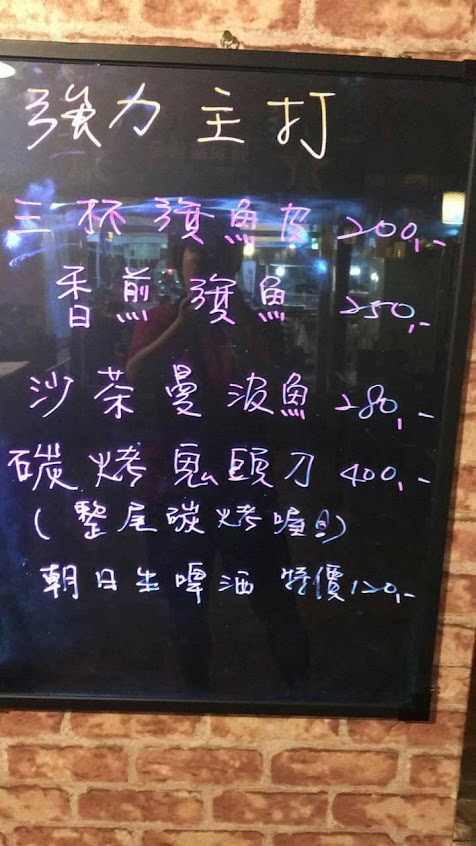 強力主打
三杯 魚皮 200,-
香煎 魚 250,-
沙茶曼波魚 280,-
碳烤鬼頭刀 400,-
(整尾碳烤喔!)
朝日生啤酒 特價120,-